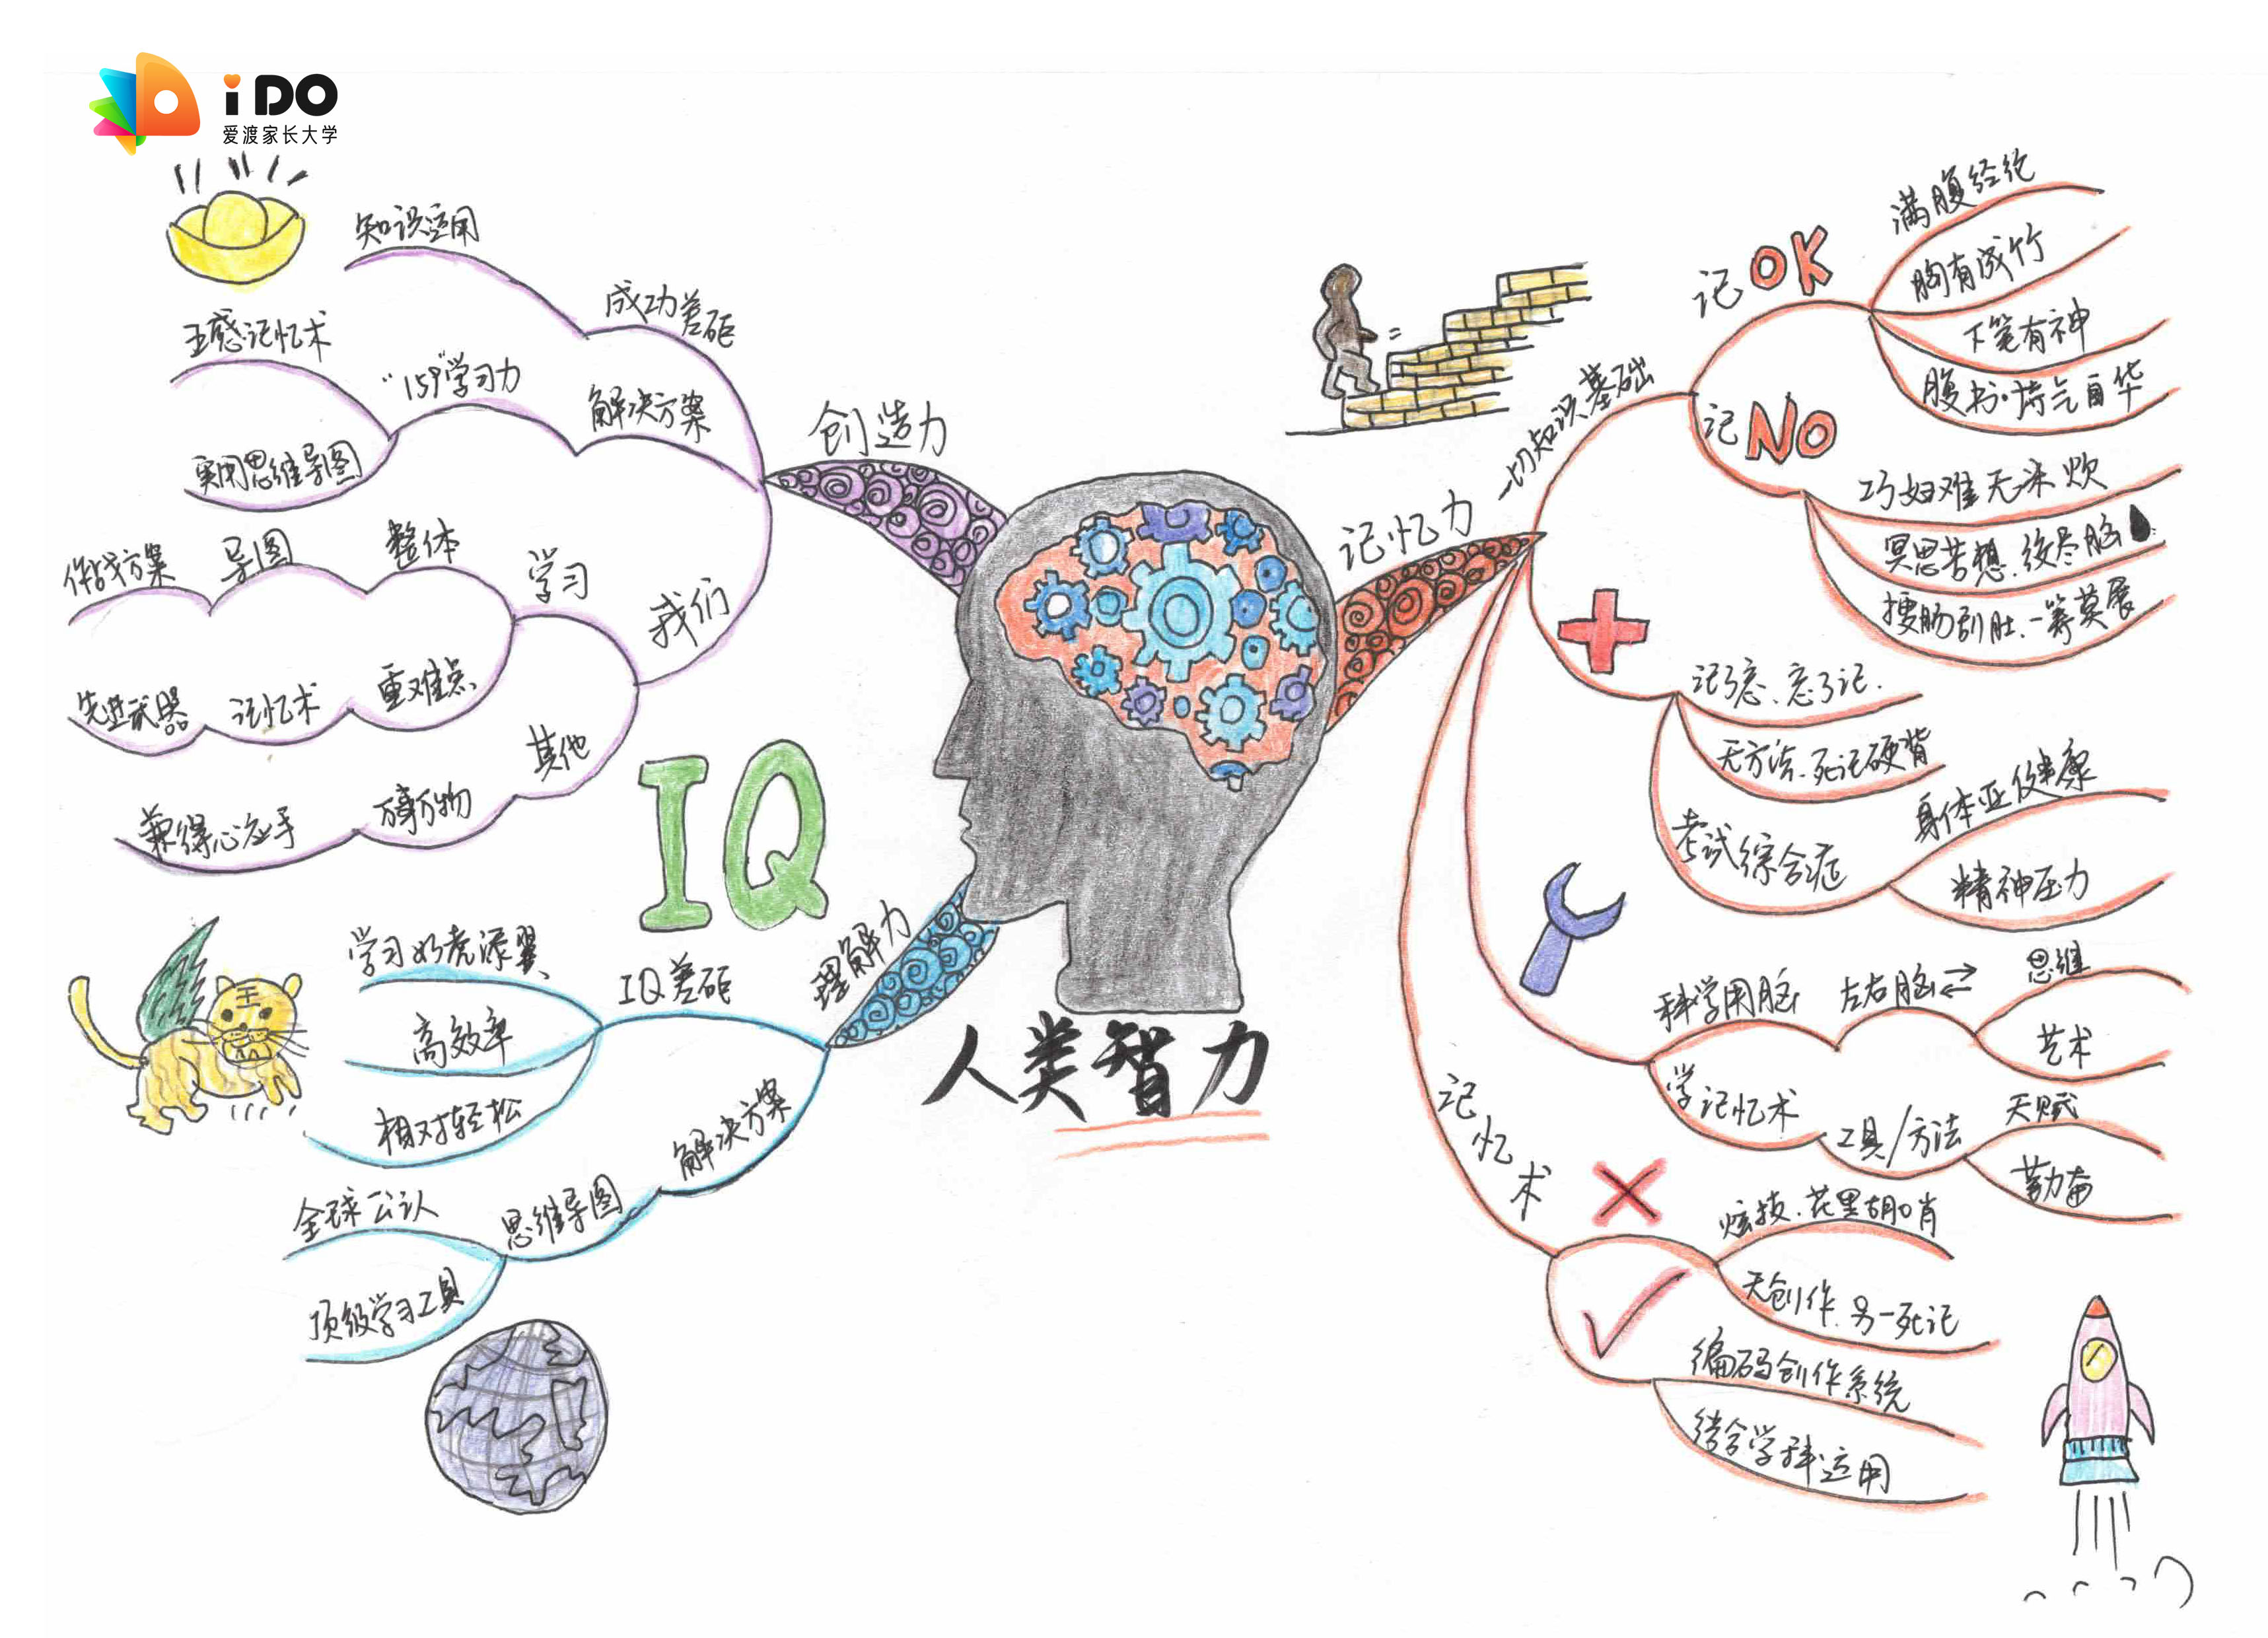 iDO
爱渡家长大学
人类智力
IQ
记忆力
一切知识基础
记OK
满腹经纶
胸有成竹
下笔有神
腹书·诗气自华
记NO
巧妇难无米炊
冥思苦想、绞尽脑
搜肠刮肚、一筹莫展
记了忘、忘了记.
无方法、死记硬背
考试综合症
身体亚健康
精神压力
科学用脑
左右脑⇄
思维
艺术
学记忆术
工具/方法
天赋
勤奋
记忆术
炫技、花里胡哨
无创作、另一死记
编码创作系统
结合学科运用
理解力
IQ差距
学习如虎添翼
高效率
相对轻松
解决方案
思维导图
全球公认
顶级学习工具
创造力
成功差距
知识运用
解决方案
"159"学习力
五感记忆术
实用思维导图
我们
学习
整体
导图
作战方案
重难点
记忆术
先进武器
其他
万事万物
兼得心应手